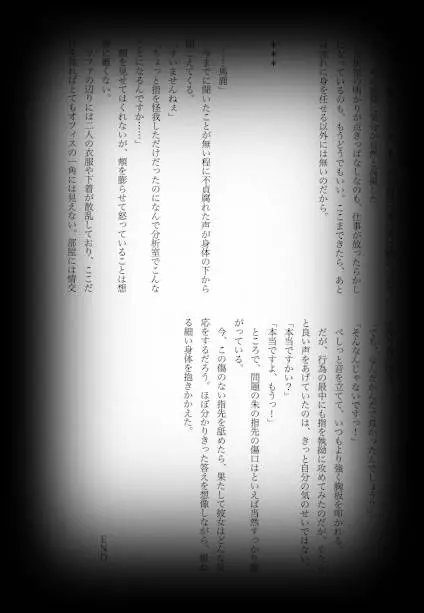 の明かりが点きっぱなしなのも、仕事が放ったらかし
なっているのも、もうどうでもいい。ここまできたら、あと
それに身を任せる以外には無いのだから。
***
……馬鹿」
今までに聞いたことが無い程に不貞腐れた声が身体の下から
聞こえてくる。
「すいませんねぇ」
「ちょっと指を怪我しただけだったのになんで分析室でこんな
ことになるんですか……」
顔を見せてはくれないが、頬を膨らませて怒っていることは想
像に難くない。
ソファの辺りには二人の衣服や下着が散乱しており、ここだ
見ればとてもオフィスの一角には見えない。部屋には情交
「そんなんじゃないですっ！」
べしっと音を立てて、いつもより強く胸板を叩かれる。
だが、行為の最中にも指を執拗に攻めてみたのだが、
と良い声をあげていたのは、きっと自分の気のせいではない。
「本当ですかい？」
「本当ですよ、もうっ！」
ところで、問題の朱の指先の傷口はといえば当然すっかり塞
がっている。
今、この傷のない指先を舐めたら、果たして彼女はどんな反
応をするだろう。ほぼ分かりきった答えを想像しながら、
る細い身体を抱きかかえた。
END